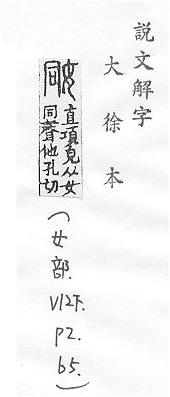 説文解字
大徐本
姛
直項皃从女
同聲他孔切
(女部.
V12下.
P2.
b5.)